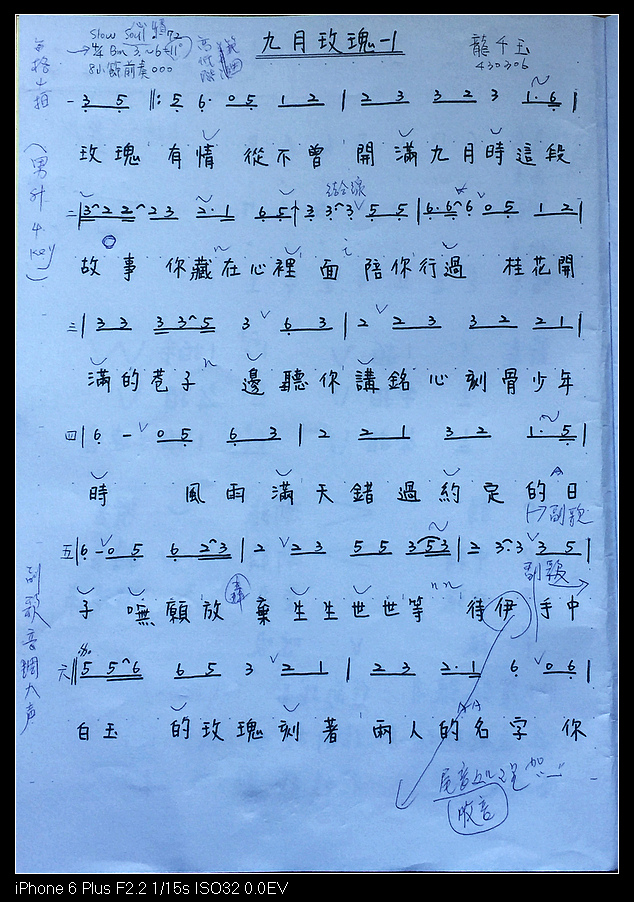 Slow Soul
九月玫瑰-1
龍千玉
430306
8小節前奏000
(男升4key)
一 3 5 ‖: 5 6· 0 5 1 2 | 2 3 3 2 3 1· 6 |
玫瑰 有情 從不曾 開滿九月時這段
二 | 3 2 2 2 3 2· 1 6 5 | 3 3 3 5 5 | 6· 6 6 0 5 1 2 |
故事 你藏在心裡 面 陪你行過 桂花開
三 | 3 3 3 3 5 3 6 3 | 2 2 3 3 2 2 1 |
滿的巷子 邊聽你講銘心刻骨少年
四 | 6 - 0 5 6 3 | 2 2 1 3 2 1· 5 |
時 風雨滿天錯過約定的日
副歌
五 | 6 - 0 5 6 2 3 | 2 2 3 5 5 3 5 3 | 2 3· 3 3 5 |
副歌
子 嘸願放棄生生世世等 待伊手中
六 ‖ 5 5 6 6 5 3 2 1 | 2 3 2· 1 6 0 6 |
白玉 的玫瑰刻著兩人的名字 你
副歌音調大声
尾音
收音
iPhone 6 Plus F2.2 1/15s ISO32 0.0EV